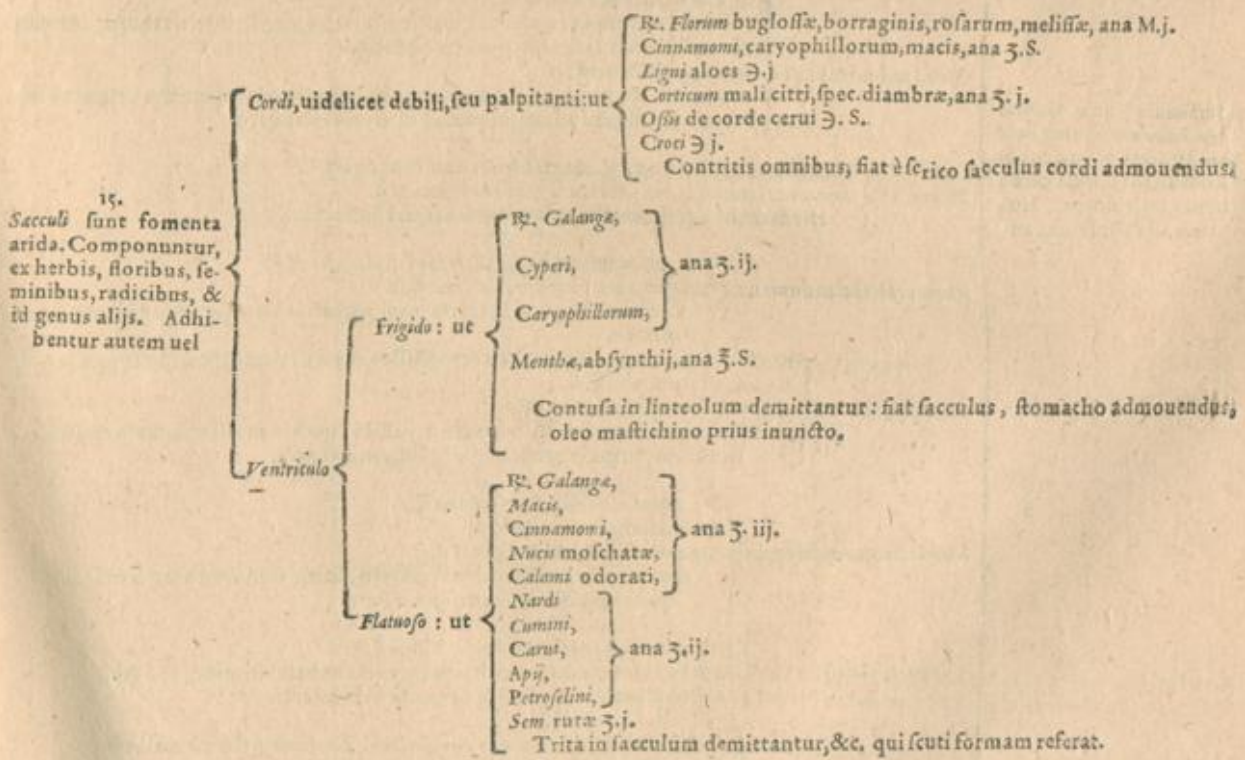 15.
Sacculi ſunt fomenta
arida. Componuntur,
ex herbis, floribus, ſe-
minibus, radicibus, &
id genus alijs. Adhi-
bentur autem uel
Cordi, uidelicet debili, ſeu palpitanti: ut
℞. Florium bugloſſæ, borraginis, roſarum, meliſſæ, ana M.j.
Cinnamomi, caryophillorum, macis, ana ʒ.S.
Ligni aloes ℈.j
Corticum mali citri, ſpec. diambræ, ana ʒ. j.
Oſſis de corde cerui ℈. S.
Croci ℈ j.
Contritis omnibus, fiat è ſerico ſacculus cordi admouendus.
Ventriculo
Frigido: ut
℞. Galangæ,
Cyperi,
Caryophillorum,
ana ʒ. ij.
Menthæ, abſynthij, ana ℥.S.
Contuſa in linteolum demittantur: fiat ſacculus, ſtomacho admouendus,
oleo maſtichino prius inuncto.
Flatuoſo: ut
℞. Galangæ,
Macis,
Cinnamomi,
Nucis moſchatæ,
Calami odorati,
ana ʒ. iij.
Nardi
Cumini,
Carui,
Apij,
Petroſelini,
ana ʒ.ij.
Sem rutæ ʒ.j.
Trita in ſacculum demittantur, &c. qui ſcuti formam referat.